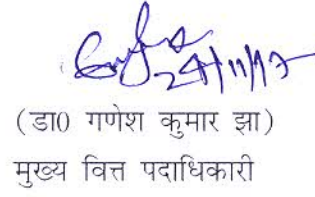 24/11/17
(डा0 गणेश कुमार झा)
मुख्य वित्त पदाधिकारी